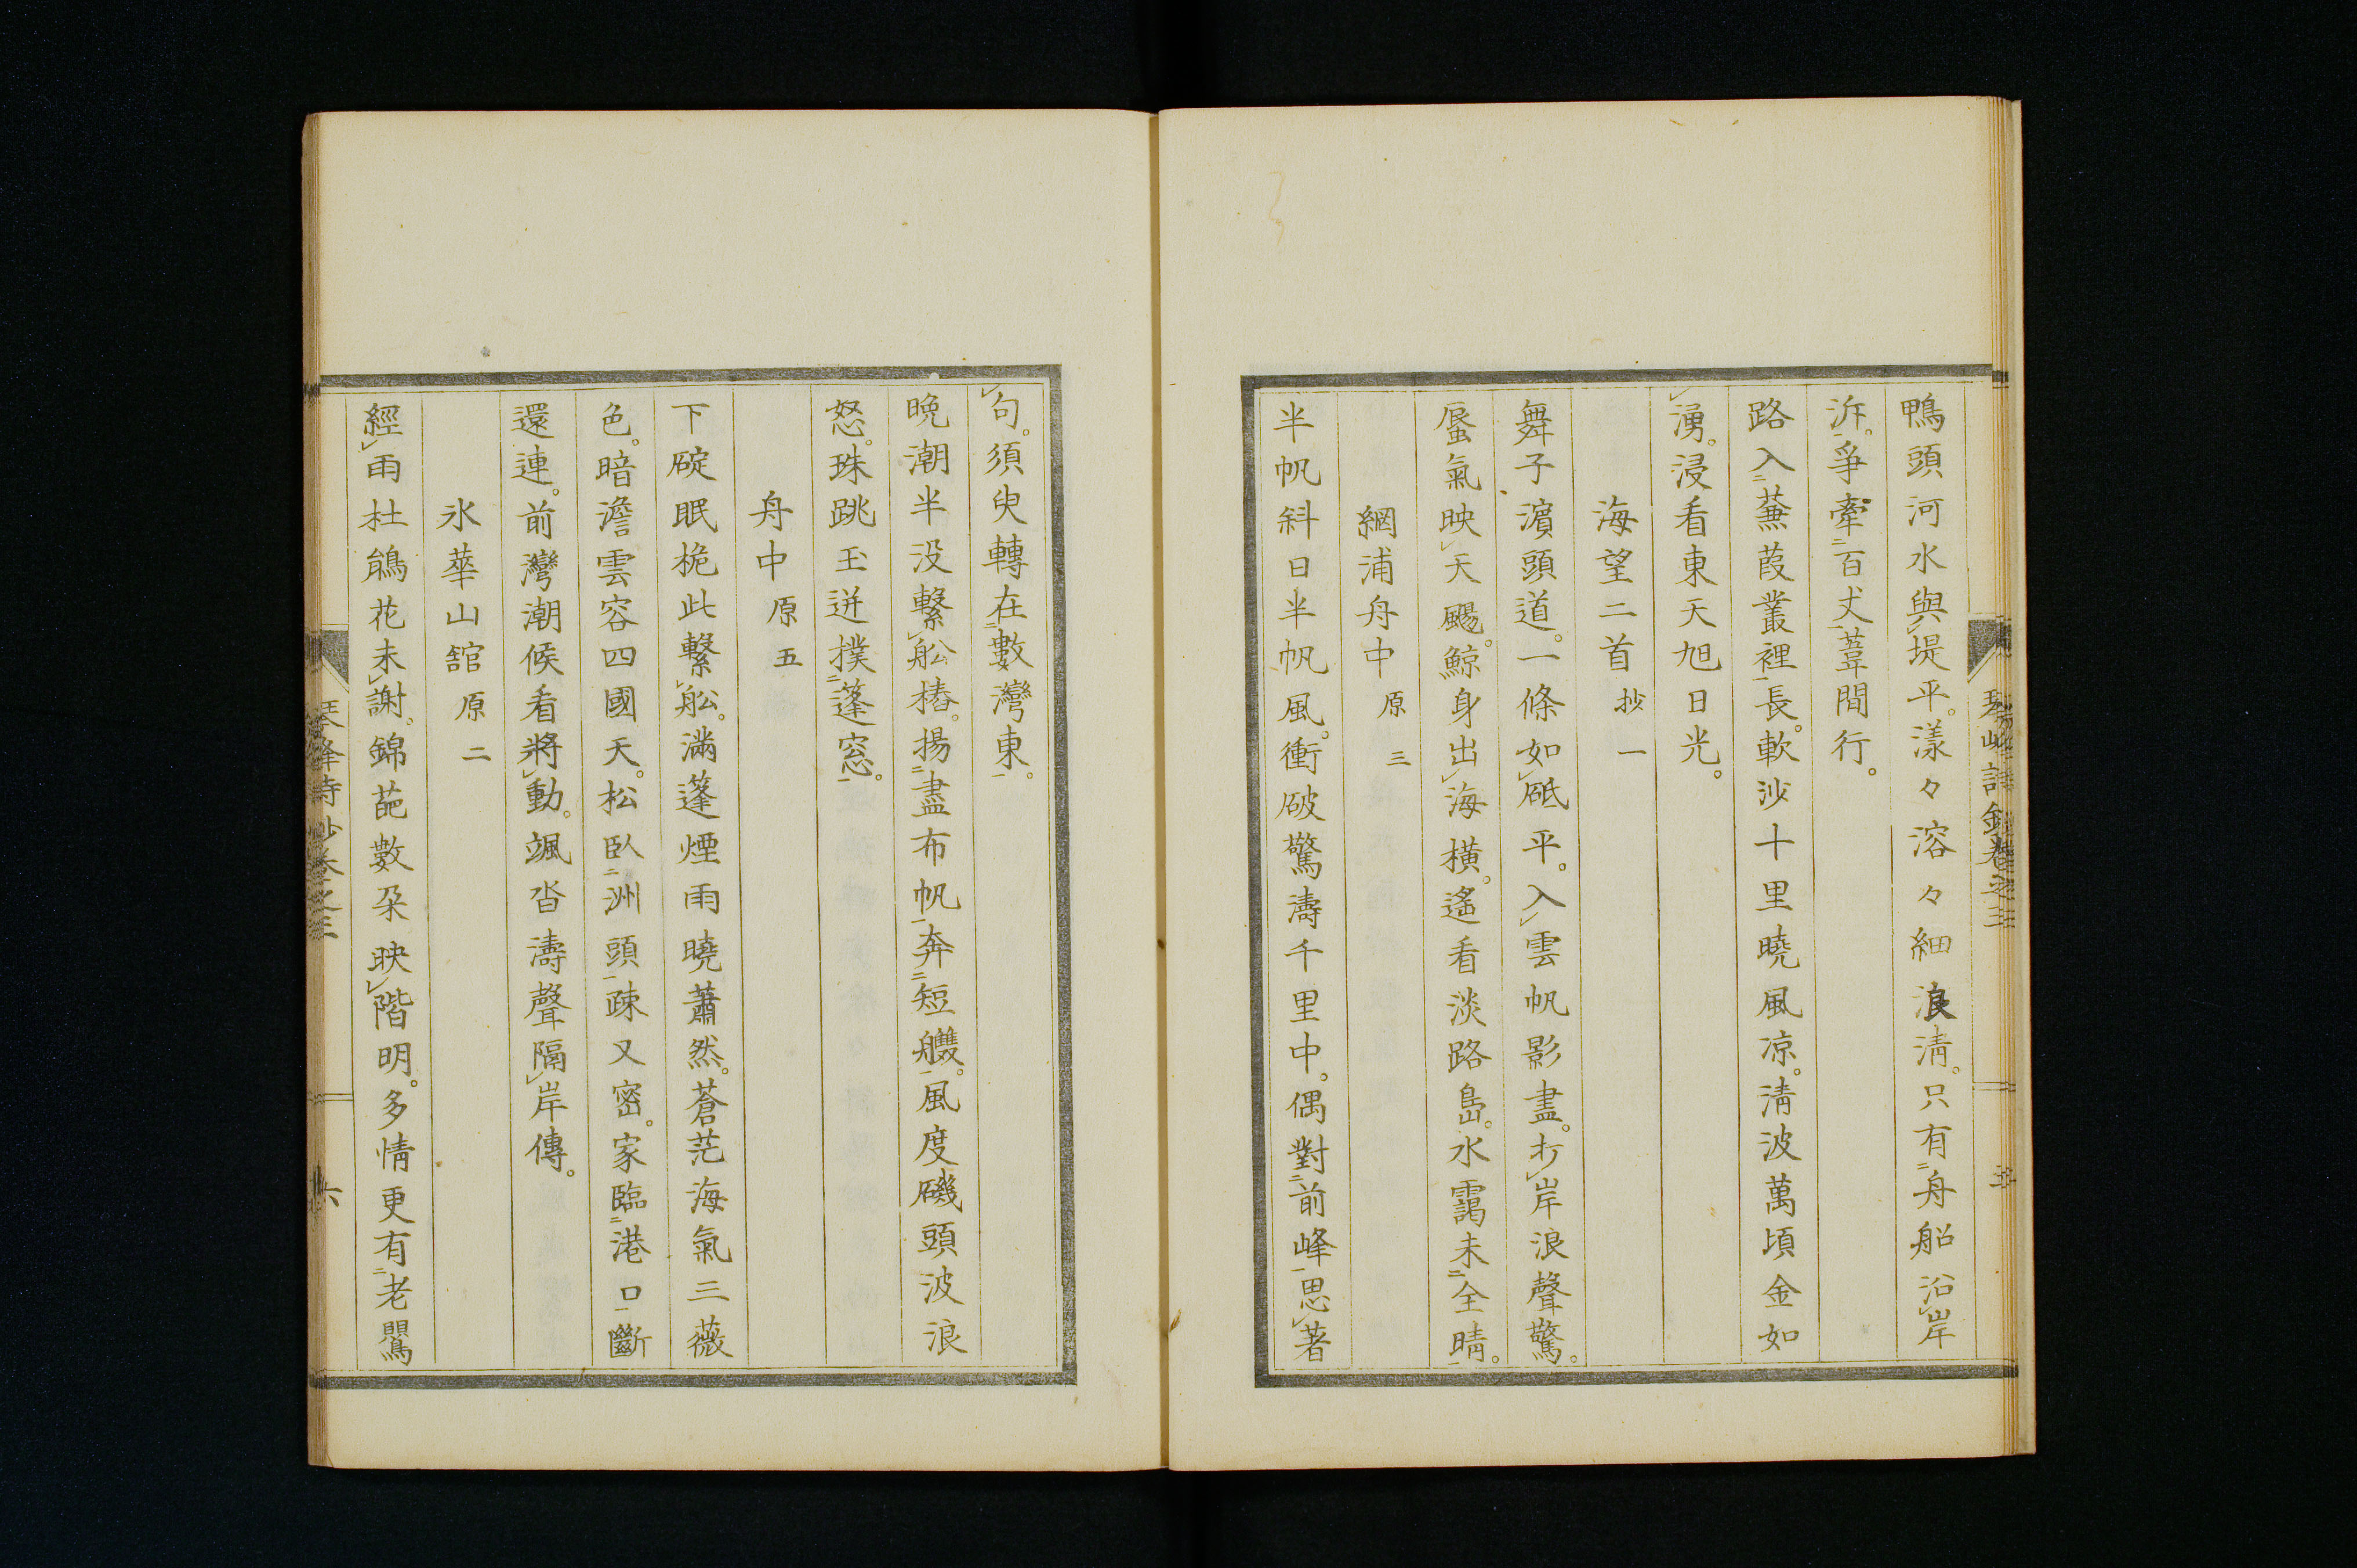 鴨頭河水與堤平。漾々溶々細浪清。只有舟船沿岸
泝。爭牽百丈葦間行。
路入蒹葭叢裡長。軟沙十里曉風凉。清波萬頃金如
湧。浸看東天旭日光。
海望二首 抄一
舞子濵頭道。一條如砥平。入雲帆影盡。打岸浪聲驚。
蜃氣映天颺。鯨身出海橫。遙看淡路島。水靄未全晴。
網浦舟中 原三
半帆斜日半帆風。衝破驚濤千里中。偶對前峰思著
琴峰詩鈔卷之三 五
句。須臾轉在數灣東。
晩潮半没繫舩樁。揚盡布帆奔短艭。風度磯頭波浪
怒。珠跳玉迸撲蓬窓。
舟中 原五
下碇眠桅此繫舩。滿篷煙雨曉蕭然。蒼茫海氣三薇
色。暗澹雲容四國天。松臥洲頭疎又密。家臨港口斷
還連。前灣潮候看將動。颯沓濤聲隔岸傳。
氷華山舘 原二
經雨杜鵑花未謝。錦葩數朶映階明。多情更有老鸎
琴峰詩鈔卷之三 六